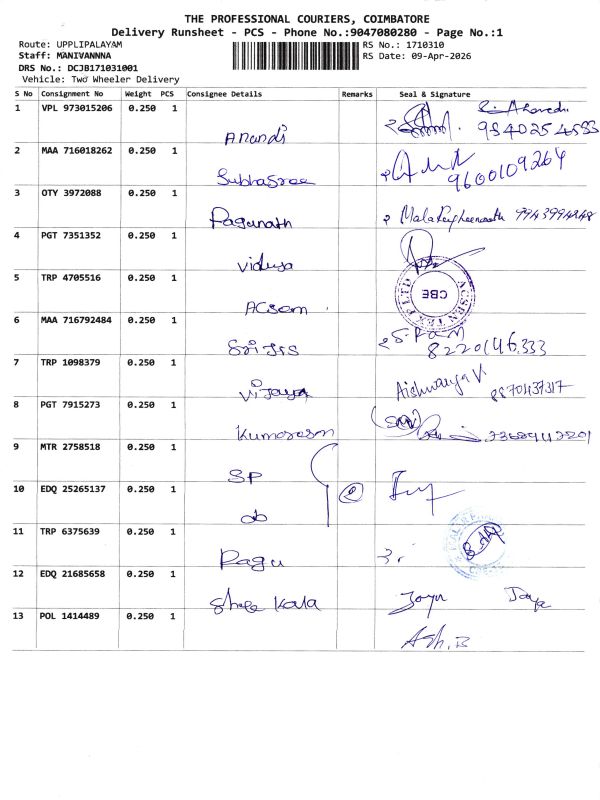 THE PROFESSIONAL COURIERS, COIMBATORE
Delivery Runsheet - PCS - Phone No.:9047080280 - Page No.:1
Route: UPPLIPALAYAM RS No.: 1710310
Staff: MANIVANNNA RS Date: 09-Apr-2026
DRS No.: DCJB171031001
Vehicle: Two Wheeler Delivery
S No Consignment No Weight PCS Consignee Details Remarks Seal & Signature
1 VPL 973015206 0.250 1
Anandi 9540254533
2 MAA 716018262 0.250 1
Subhasree 9600109264
3 OTY 3972088 0.250 1
Ragunath
4 PGT 7351352 0.250 1
vidhya
5 TRP 4705516 0.250 1
ACsem CBE
6 MAA 716792484 0.250 1
Sri JSS S. RAM
8220146333
7 TRP 1098379 0.250 1
Vijaya Aishwarya V
8870437317
8 PGT 7915273 0.250 1
Kumaresan
9 MTR 2758518 0.250 1
SP
10 EDQ 25265137 0.250 1
do
11 TRP 6375639 0.250 1
Ragu
12 EDQ 21685658 0.250 1
Shree Kala
13 POL 1414489 0.250 1